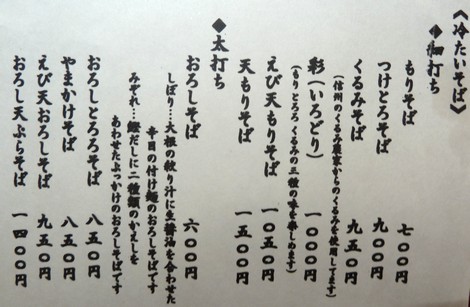 《冷たいそば》
◆細打ち
もりそば 七〇〇円
つけとろそば 九〇〇円
くるみそば 九五〇円
(信州のくるみ農家からのくるみを使用してます)
彩(いろどり) 一〇〇〇円
(もり とろろ くるみの三種の味を楽しめます)
えび天もりそば 一〇五〇円
天もりそば 一五〇〇円
◆太打ち
おろしそば 六〇〇円
しぼり…大根の絞り汁に生醤油を合わせた
辛目の付け麺のおろしそばです
みぞれ…鰹だしに二種類のかえしを
あわせたぶっかけのおろしそばです
おろしとろろそば 八五〇円
やまかけそば 八五〇円
えび天おろしそば 九五〇円
おろし天ぷらそば 一四〇〇円